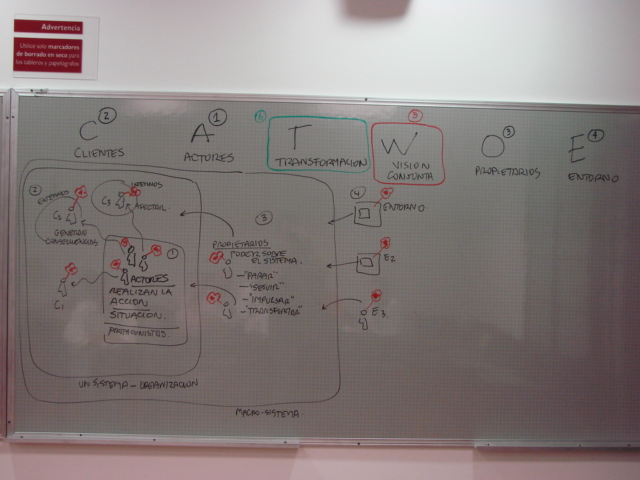 Advertencia
Utilice solo marcadores
de borrado en seco para
los tableros y papelógrafos
2
1
6
5
3
4
C
A
T
W
O
E
CLIENTES
ACTORES
TRANSFORMACION
VISION
CONJUNTA
PROPIETARIOS
ENTORNO
2
EXTERNOS
C2
GENERAN
CONSECUENCIAS
INTERNOS
C3
AFECTAR
1
ACTORES
REALIZAN LA
ACCION
SITUACION.
PROTAGONISTAS.
C1
3
PROPIETARIOS
PODER SOBRE
EL SISTEMA.
- "PARAR"
- "SEGUIR"
- "IMPULSAR"
- "TRANSFORMAR"
4
ENTORNO.
E2
E3.
UN SISTEMA - ORGANIZACIÓN
MACRO-SISTEMA